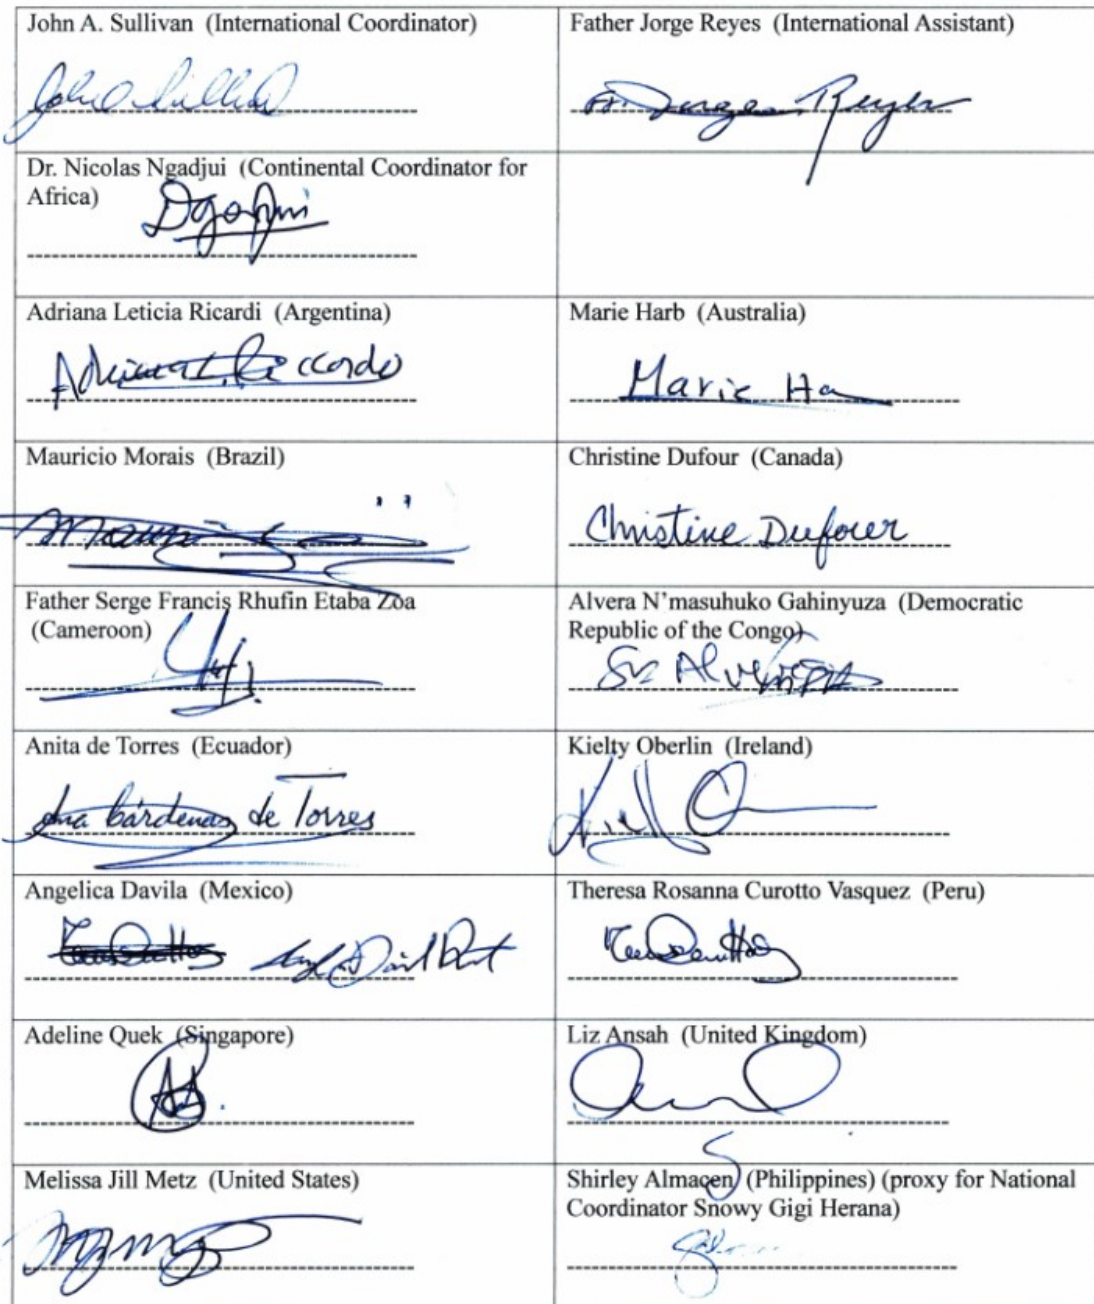 John A. Sullivan (International Coordinator)
Father Jorge Reyes (International Assistant)
Fr. Jorge Reyes
Dr. Nicolas Ngadjui (Continental Coordinator for
Africa)
Adriana Leticia Ricardi (Argentina)
Marie Harb (Australia)
Marie Ha
Mauricio Morais (Brazil)
Christine Dufour (Canada)
Christine Dufour
Father Serge Francis Rhufin Etaba Zoa
(Cameroon)
Alvera N’masuhuko Gahinyuza (Democratic
Republic of the Congo)
Sr Alvera
Anita de Torres (Ecuador)
Ana Cárdenas de Torres
Kielty Oberlin (Ireland)
Angelica Davila (Mexico)
Theresa Rosanna Curotto Vasquez (Peru)
Adeline Quek (Singapore)
Liz Ansah (United Kingdom)
Melissa Jill Metz (United States)
Shirley Almacen (Philippines) (proxy for National
Coordinator Snowy Gigi Herana)